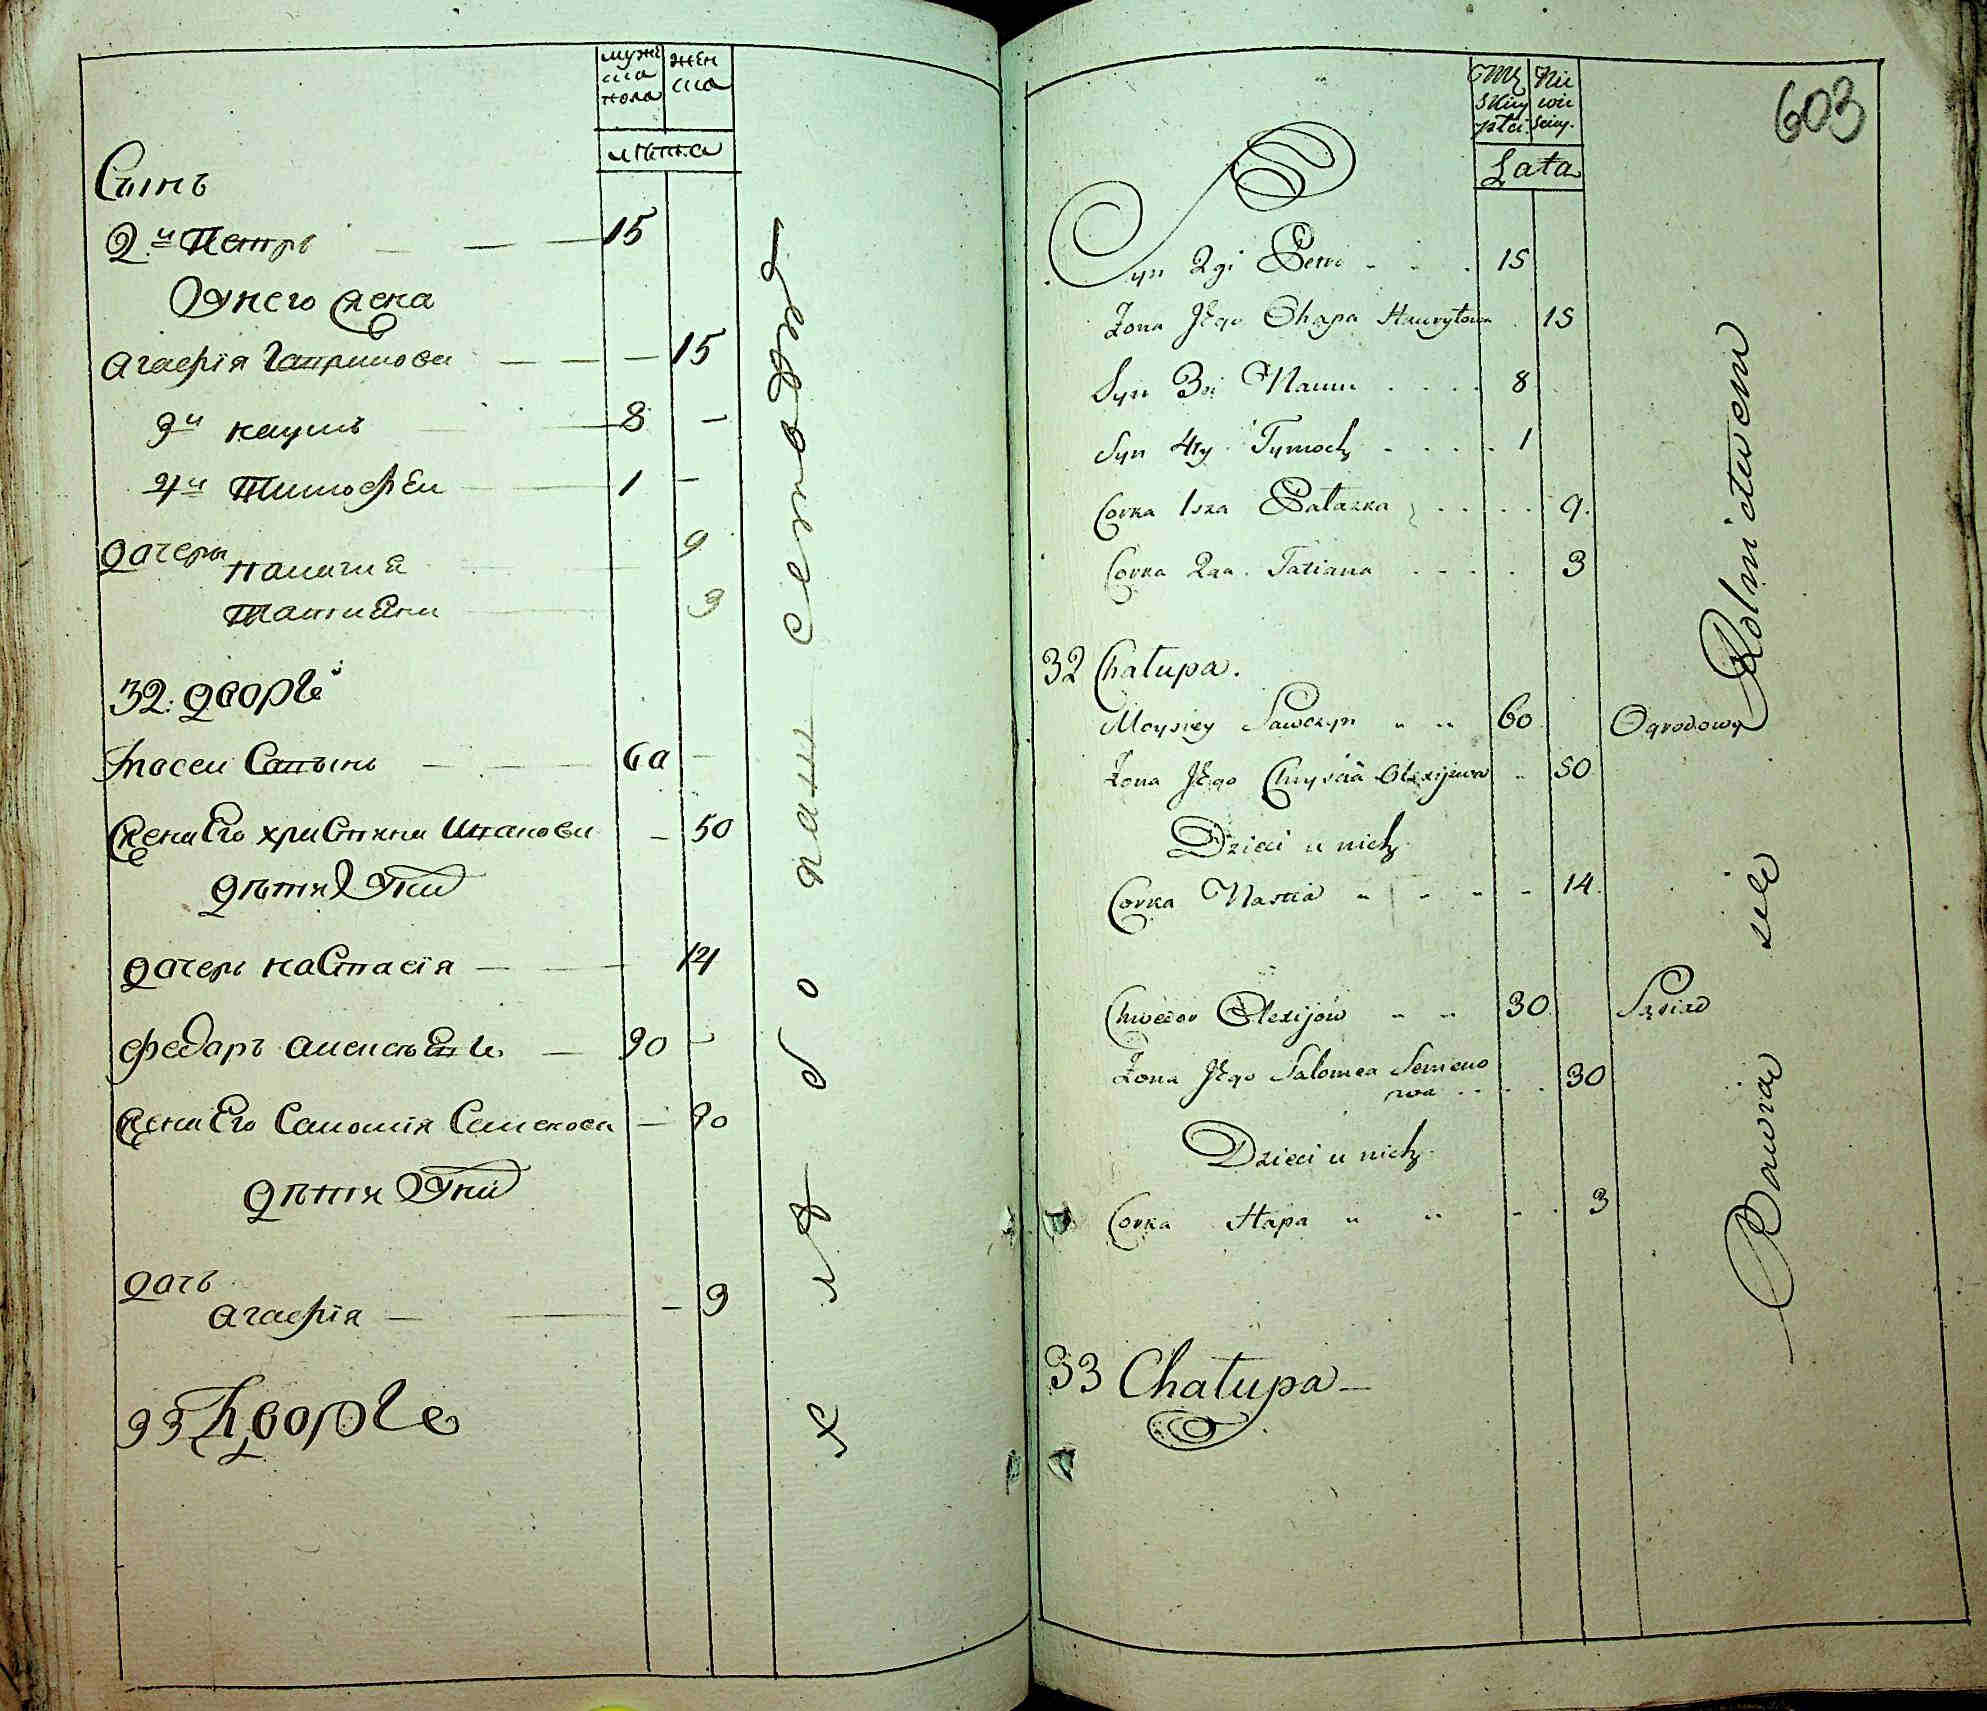 мужеска пола
женска
лѣта
Сынъ
2й Петръ — — — 15
У него жена
Агафія Гаврилова — — — 15
3й Наумъ — 8 —
4й Тимофѣй — 1 —
дочери
Палагия — 9
Татияна — 3
32. дворъ
60 —
Жена Его христина — 50
дѣти У ни
дочерь настасія — — 14
федаръ — 30 —
Жена Его Саломія Семенова — 30
дѣти У ни
дочь
агафія — — — 3
33 Дворъ
хлѣбопашествомъ
603
Męskiey płci
Niewieściey
Lata
Syn 2gi Petro - - - 15
Żona Jego Ohapa Hawryłowa . 15
Syn 3ci Naum . . . . 8
Syn 4ty Tymoch . . . . 1
Corka 1sza Pałazka . . . . . 9.
Corka 2ga Tatiana . . . . 3
32 Chałupa.
Moysiey Sawczyn " " 60 Ogrodowy
Żona Jego Chrystia Olexijowa " 50
Dzieci u nich
Corka Nastia " " " - 14.
Chwedor Olexijow " " 30 Sąsiad
Żona Jego Salomea Semeno
wa . . . . 30
Dzieci u nich
Corka Hapa " " - . 3
33 Chałupa —
Bawiąc się Rolnictwem